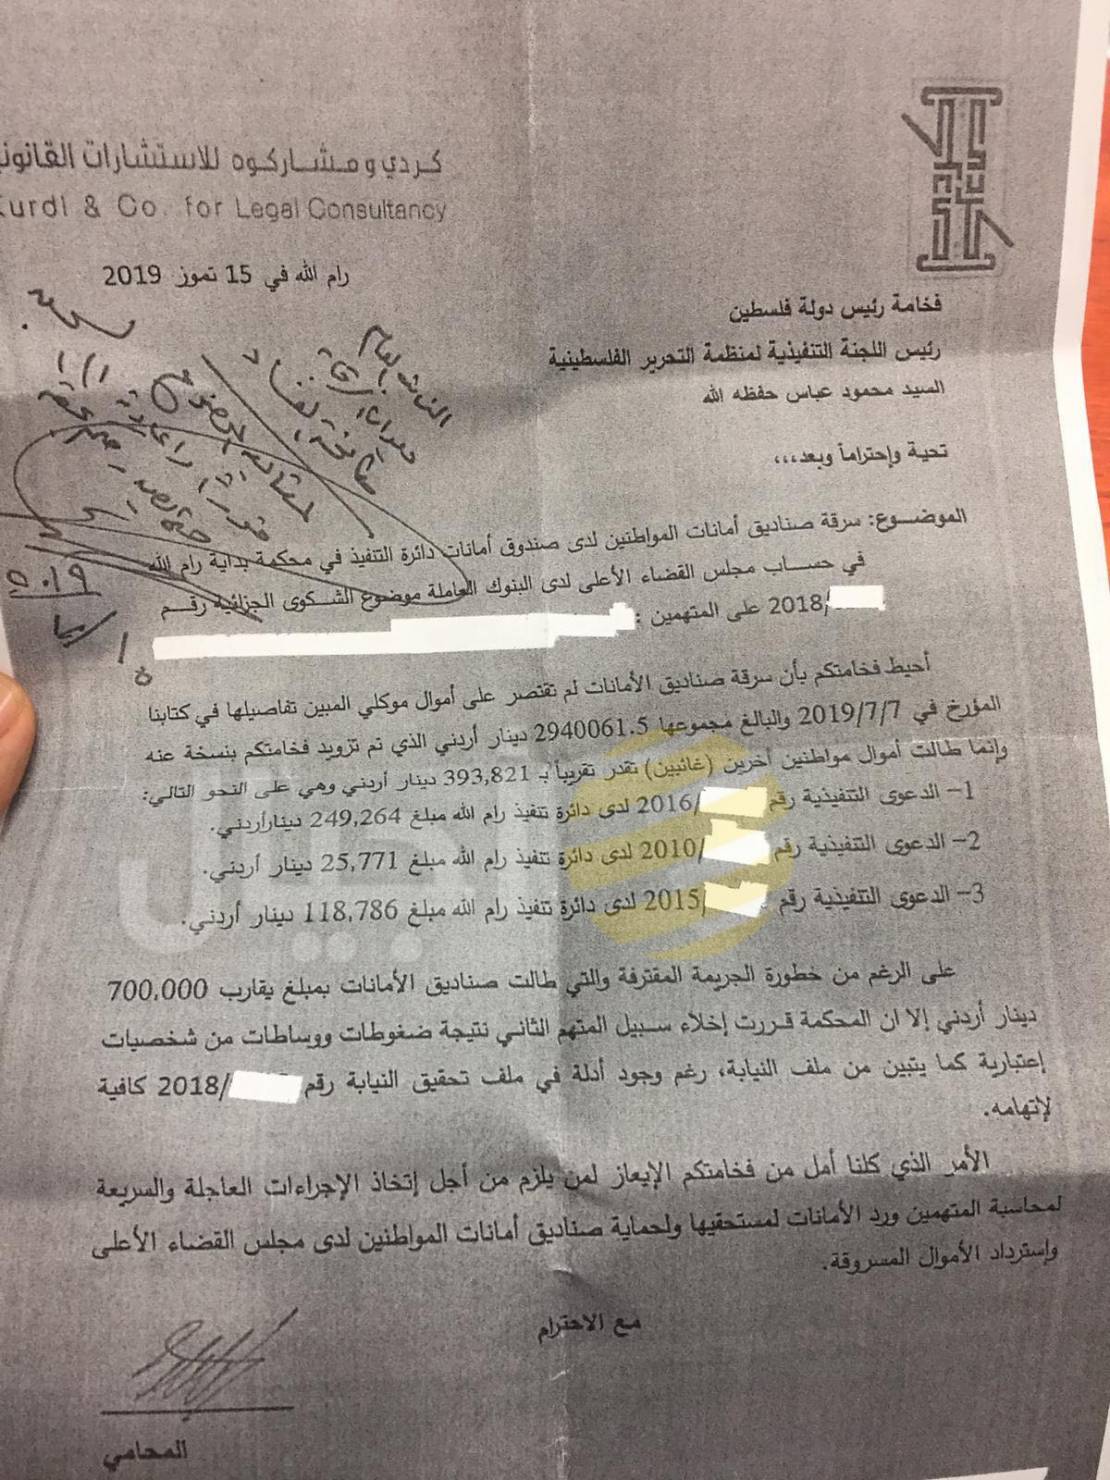 كردي ومشاركوه للاستشارات القانوني
Kurdi & Co. for Legal Consultancy
رام الله في 15 تموز 2019
فخامة رئيس دولة فلسطين
رئيس اللجنة التنفيذية لمنظمة التحرير الفلسطينية
السيد محمود عباس حفظه الله
تحية وإحتراماً وبعد،،،
الموضــوع: سرقة صناديق أمانات المواطنين لدى صندوق أمانات دائرة التنفيذ في محكمة بداية رام الله
في حساب مجلس القضاء الأعلى لدى البنوك العاملة موضوع الشكوى الجزائية رقم
2018/ على المتهمين :
أحيط فخامتكم بأن سرقة صناديق الأمانات لم تقتصر على أموال موكلي المبين تفاصيلها في كتابنا
المؤرخ في 2019/7/7 والبالغ مجموعها 2940061.5 دينار أردني الذي تم تزويد فخامتكم بنسخة عنه
وإنما طالت أموال مواطنين أخرين (غائبين) تقدر تقريباً بـ 393,821 دينار أردني وهي على النحو التالي:
1- الدعوى التنفيذية رقم 2016/ لدى دائرة تنفيذ رام الله مبلغ 249,264 دينارأردني.
2- الدعوى التنفيذية رقم 2010/ لدى دائرة تنفيذ رام الله مبلغ 25,771 دينار أردني.
3- الدعوى التنفيذية رقم 2015/ لدى دائرة تنفيذ رام الله مبلغ 118,786 دينار أردني.
على الرغم من خطورة الجريمة المقترفة والتي طالت صناديق الأمانات بمبلغ يقارب 700,000
دينار أردني إلا ان المحكمة قررت إخلاء سبيل المتهم الثاني نتيجة ضغوطات ووساطات من شخصيات
إعتبارية كما يتبين من ملف النيابة، رغم وجود أدلة في ملف تحقيق النيابة رقم 2018/ كافية
لإتهامه.
الأمر الذي كلنا أمل من فخامتكم الإيعاز لمن يلزم من أجل إتخاذ الإجراءات العاجلة والسريعة
لمحاسبة المتهمين ورد الأمانات لمستحقيها ولحماية صناديق أمانات المواطنين لدى مجلس القضاء الأعلى
وإسترداد الأموال المسروقة.
مع الاحترام
المحامي